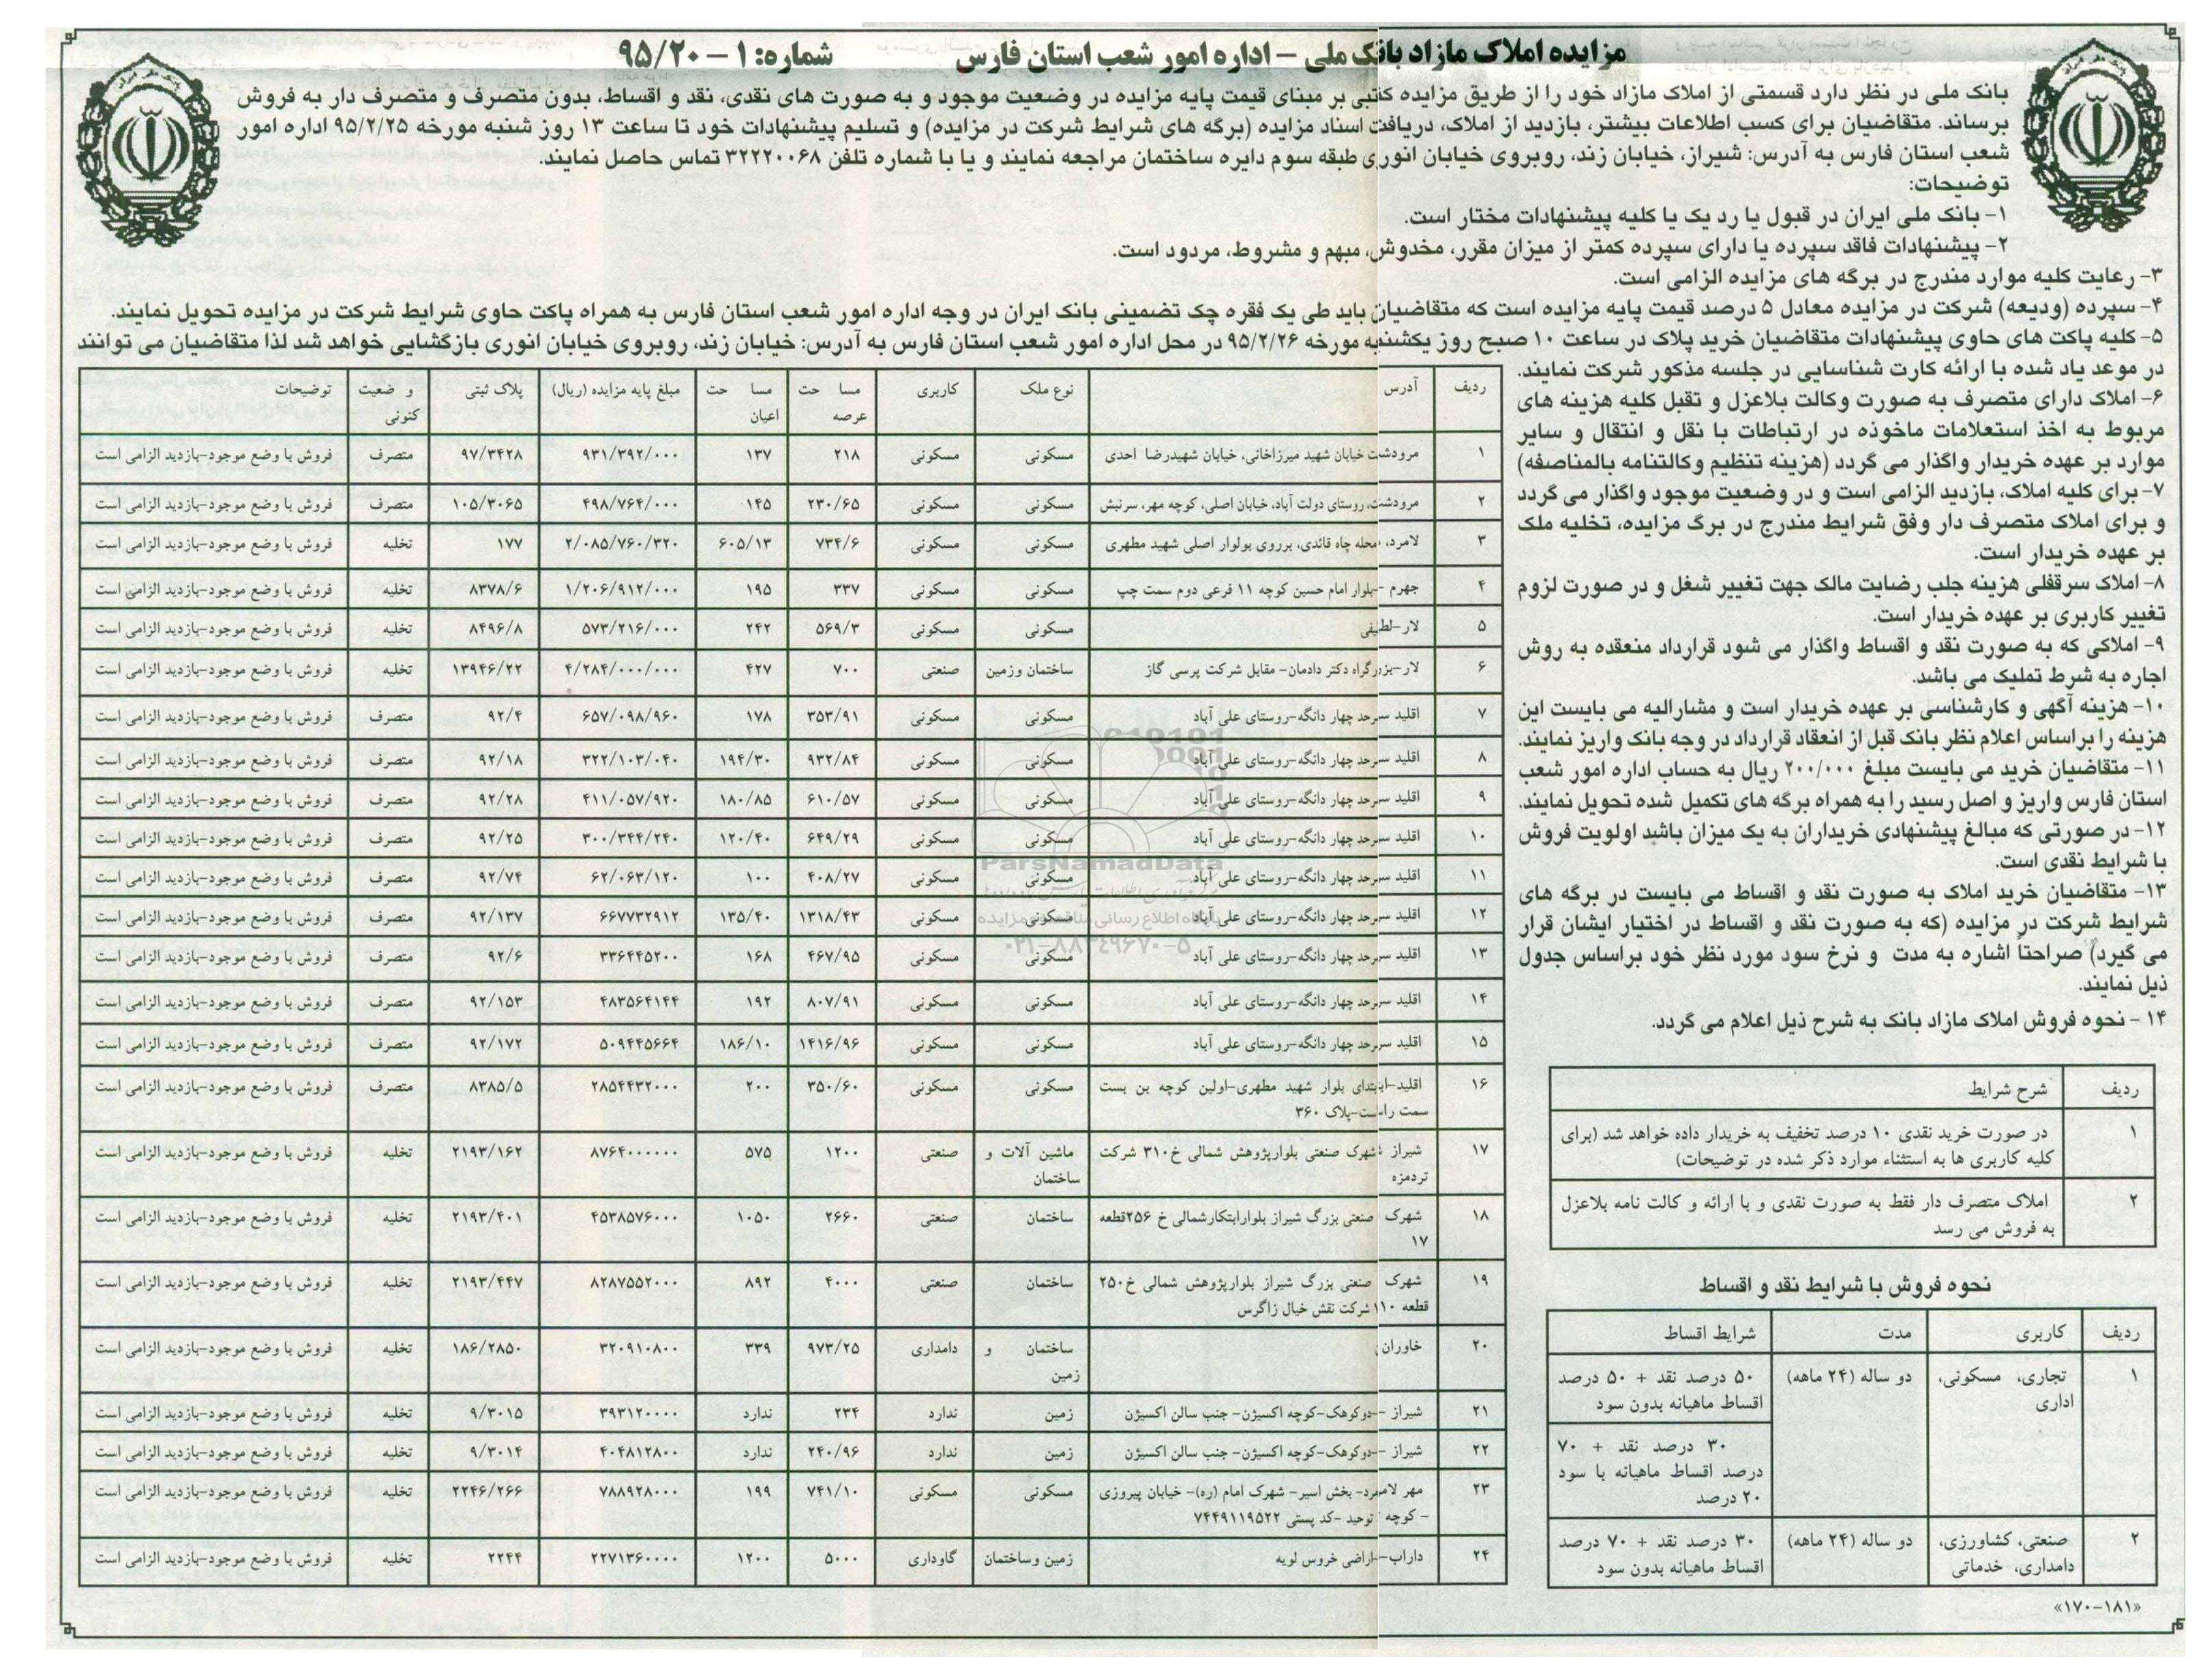 مزایده املاک مازاد بانک ملی – اداره امور شعب استان فارس شماره: ۱ – ۹۵/۲۰
بانک ملی در نظر دارد قسمتی از املاک مازاد خود را از طریق مزایده کتبی بر مبنای قیمت پایه مزایده در وضعیت موجود و به صورت های نقدی، نقد و اقساط، بدون متصرف و متصرف دار به فروش
برساند. متقاضیان برای کسب اطلاعات بیشتر، بازدید از املاک، دریافت اسناد مزایده (برگه های شرایط شرکت در مزایده) و تسلیم پیشنهادات خود تا ساعت ۱۳ روز شنبه مورخه ۹۵/۲/۲۵ اداره امور
شعب استان فارس به آدرس: شیراز، خیابان زند، روبروی خیابان انوری طبقه سوم دایره ساختمان مراجعه نمایند و یا با شماره تلفن ۳۲۲۲۰۰۶۸ تماس حاصل نمایند.
توضیحات:
۱- بانک ملی ایران در قبول یا رد یک یا کلیه پیشنهادات مختار است.
۲- پیشنهادات فاقد سپرده یا دارای سپرده کمتر از میزان مقرر، مخدوش، مبهم و مشروط، مردود است.
۳- رعایت کلیه موارد مندرج در برگه های مزایده الزامی است.
۴- سپرده (ودیعه) شرکت در مزایده معادل ۵ درصد قیمت پایه مزایده است که متقاضیان باید طی یک فقره چک تضمینی بانک ایران در وجه اداره امور شعب استان فارس به همراه پاکت حاوی شرایط شرکت در مزایده تحویل نمایند.
۵- کلیه پاکت های حاوی پیشنهادات متقاضیان خرید پلاک در ساعت ۱۰ صبح روز یکشنبه مورخه ۹۵/۲/۲۶ در محل اداره امور شعب استان فارس به آدرس: خیابان زند، روبروی خیابان انوری بازگشایی خواهد شد لذا متقاضیان می توانند
در موعد یاد شده با ارائه کارت شناسایی در جلسه مذکور شرکت نمایند.
۶- املاک دارای متصرف به صورت وکالت بلاعزل و تقبل کلیه هزینه های
مربوط به اخذ استعلامات ماخوذه در ارتباطات با نقل و انتقال و سایر
موارد بر عهده خریدار واگذار می گردد (هزینه تنظیم وکالتنامه بالمناصفه)
۷- برای کلیه املاک، بازدید الزامی است و در وضعیت موجود واگذار می گردد
و برای املاک متصرف دار وفق شرایط مندرج در برگ مزایده، تخلیه ملک
بر عهده خریدار است.
۸- املاک سرقفلی هزینه جلب رضایت مالک جهت تغییر شغل و در صورت لزوم
تغییر کاربری بر عهده خریدار است.
۹- املاکی که به صورت نقد و اقساط واگذار می شود قرارداد منعقده به روش
اجاره به شرط تملیک می باشد.
۱۰- هزینه آگهی و کارشناسی بر عهده خریدار است و مشارالیه می بایست این
هزینه را براساس اعلام نظر بانک قبل از انعقاد قرارداد در وجه بانک واریز نمایند.
۱۱- متقاضیان خرید می بایست مبلغ ۲۰۰/۰۰۰ ریال به حساب اداره امور شعب
استان فارس واریز و اصل رسید را به همراه برگه های تکمیل شده تحویل نمایند.
۱۲- در صورتی که مبالغ پیشنهادی خریداران به یک میزان باشد اولویت فروش
با شرایط نقدی است.
۱۳- متقاضیان خرید املاک به صورت نقد و اقساط می بایست در برگه های
شرایط شرکت در مزایده (که به صورت نقد و اقساط در اختیار ایشان قرار
می گیرد) صراحتاً اشاره به مدت و نرخ سود مورد نظر خود براساس جدول
ذیل نمایند.
۱۴ - نحوه فروش املاک مازاد بانک به شرح ذیل اعلام می گردد.
ردیف شرح شرایط
۱ در صورت خرید نقدی ۱۰ درصد تخفیف به خریدار داده خواهد شد (برای
کلیه کاربری ها به استثناء موارد ذکر شده در توضیحات)
۲ املاک متصرف دار فقط به صورت نقدی و با ارائه و کالت نامه بلاعزل
به فروش می رسد
نحوه فروش با شرایط نقد و اقساط
ردیف کاربری مدت شرایط اقساط
۱ تجاری، مسکونی، دو ساله (۲۴ ماهه) ۵۰ درصد نقد + ۵۰ درصد
اداری اقساط ماهیانه بدون سود
۳۰ درصد نقد + ۷۰
درصد اقساط ماهیانه با سود
۲۰ درصد
۲ صنعتی، کشاورزی، دو ساله (۲۴ ماهه) ۳۰ درصد نقد + ۷۰ درصد
دامداری، خدماتی اقساط ماهیانه بدون سود
«۱۷۰-۱۸۱»
ردیف آدرس نوع ملک کاربری مسا حت مسا حت مبلغ پایه مزایده (ریال) پلاک ثبتی و ضعیت توضیحات
عرصه اعیان کنونی
۱ مرودشت خیابان شهید میرزاخانی، خیابان شهیدرضا احدی مسکونی مسکونی ۲۱۸ ۱۳۷ ۹۳۱/۳۹۲/۰۰۰ ۹۷/۳۴۲۸ متصرف فروش با وضع موجود-بازدید الزامی است
۲ مرودشت، روستای دولت آباد، خیابان اصلی، کوچه مهر، سرنبش مسکونی مسکونی ۲۳۰/۶۵ ۱۴۵ ۴۹۸/۷۶۴/۰۰۰ ۱۰۵/۳۰۶۵ متصرف فروش با وضع موجود-بازدید الزامی است
۳ لامرد، محله چاه قائدی، برروی بولوار اصلی شهید مطهری مسکونی مسکونی ۷۳۴/۶ ۶۰۵/۱۳ ۲/۰۸۵/۷۶۰/۳۲۰ ۱۷۷ تخلیه فروش با وضع موجود-بازدید الزامی است
۴ جهرم -بلوار امام حسین کوچه ۱۱ فرعی دوم سمت چپ مسکونی مسکونی ۳۳۷ ۱۹۵ ۱/۲۰۶/۹۱۲/۰۰۰ ۸۳۷۸/۶ تخلیه فروش با وضع موجود-بازدید الزامی است
۵ لار-لطیفی مسکونی مسکونی ۵۶۹/۳ ۲۴۲ ۵۷۳/۲۱۶/۰۰۰ ۸۴۹۶/۸ تخلیه فروش با وضع موجود-بازدید الزامی است
۶ لار-بزرگراه دکتر دادمان- مقابل شرکت پرسی گاز ساختمان وزمین صنعتی ۷۰۰ ۴۲۷ ۴/۲۸۴/۰۰۰/۰۰۰ ۱۳۹۴۶/۲۲ تخلیه فروش با وضع موجود-بازدید الزامی است
۷ اقلید سرحد چهار دانگه-روستای علی آباد مسکونی مسکونی ۳۵۳/۹۱ ۱۷۸ ۶۵۷/۰۹۸/۹۶۰ ۹۲/۴ متصرف فروش با وضع موجود-بازدید الزامی است
۸ اقلید سرحد چهار دانگه-روستای علی آباد مسکونی مسکونی ۹۳۲/۸۴ ۱۹۴/۳۰ ۳۲۲/۱۰۳/۰۴۰ ۹۲/۱۸ متصرف فروش با وضع موجود-بازدید الزامی است
۹ اقلید سرحد چهار دانگه-روستای علی آباد مسکونی مسکونی ۶۱۰/۵۷ ۱۸۰/۸۵ ۴۱۱/۰۵۷/۹۲۰ ۹۲/۲۸ متصرف فروش با وضع موجود-بازدید الزامی است
۱۰ اقلید سرحد چهار دانگه-روستای علی آباد مسکونی مسکونی ۶۴۹/۲۹ ۱۲۰/۴۰ ۳۰۰/۳۴۴/۲۴۰ ۹۲/۲۵ متصرف فروش با وضع موجود-بازدید الزامی است
۱۱ اقلید سرحد چهار دانگه-روستای علی آباد مسکونی مسکونی ۴۰۸/۲۷ ۱۰۰ ۶۲/۰۶۳/۱۲۰ ۹۲/۷۴ متصرف فروش با وضع موجود-بازدید الزامی است
۱۲ اقلید سرحد چهار دانگه-روستای علی آباد مسکونی مسکونی ۱۳۱۸/۴۳ ۱۳۵/۴۰ ۶۶۷۷۳۲۹۱۲ ۹۲/۱۳۷ متصرف فروش با وضع موجود-بازدید الزامی است
۱۳ اقلید سرحد چهار دانگه-روستای علی آباد مسکونی مسکونی ۴۶۷/۹۵ ۱۶۸ ۳۳۶۴۴۵۲۰۰ ۹۲/۶ متصرف فروش با وضع موجود-بازدید الزامی است
۱۴ اقلید سرحد چهار دانگه-روستای علی آباد مسکونی مسکونی ۸۰۷/۹۱ ۱۹۲ ۴۸۳۵۶۴۱۴۴ ۹۲/۱۵۳ متصرف فروش با وضع موجود-بازدید الزامی است
۱۵ اقلید سرحد چهار دانگه-روستای علی آباد مسکونی مسکونی ۱۴۱۶/۹۶ ۱۸۶/۱۰ ۵۰۹۴۴۵۶۶۴ ۹۲/۱۷۲ متصرف فروش با وضع موجود-بازدید الزامی است
۱۶ اقلید-ابتدای بلوار شهید مطهری-اولین کوچه بن بست مسکونی مسکونی ۳۵۰/۶۰ ۲۰۰ ۲۸۵۴۴۳۲۰۰۰ ۸۳۸۵/۵ متصرف فروش با وضع موجود-بازدید الزامی است
سمت راست-پلاک ۳۶۰
۱۷ شیراز شهرک صنعتی بلوارپژوهش شمالی خ۳۱۰ شرکت ماشین آلات و صنعتی ۱۲۰۰ ۵۷۵ ۸۷۶۴۰۰۰۰۰۰ ۲۱۹۳/۱۶۲ تخلیه فروش با وضع موجود-بازدید الزامی است
تردمزه ساختمان
۱۸ شهرک صنعتی بزرگ شیراز بلوارابتکارشمالی خ ۲۵۶قطعه ساختمان صنعتی ۲۶۶۰ ۱۰۵۰ ۴۵۳۸۵۷۶۰۰۰ ۲۱۹۳/۴۰۱ تخلیه فروش با وضع موجود-بازدید الزامی است
۱۷
۱۹ شهرک صنعتی بزرگ شیراز بلوارپژوهش شمالی خ۲۵۰ ساختمان صنعتی ۴۰۰۰ ۸۹۲ ۸۲۸۷۵۵۲۰۰۰ ۲۱۹۳/۴۴۷ تخلیه فروش با وضع موجود-بازدید الزامی است
قطعه ۱۱۰ شرکت نقش خیال زاگرس
۲۰ خاوران ساختمان و دامداری ۹۷۳/۲۵ ۳۳۹ ۳۲۰۹۱۰۸۰۰ ۱۸۶/۲۸۵۰ تخلیه فروش با وضع موجود-بازدید الزامی است
زمین
۲۱ شیراز -دوکوهک-کوچه اکسیژن- جنب سالن اکسیژن زمین ندارد ۲۳۴ ندارد ۳۹۳۱۲۰۰۰۰ ۹/۳۰۱۵ تخلیه فروش با وضع موجود-بازدید الزامی است
۲۲ شیراز -دوکوهک-کوچه اکسیژن- جنب سالن اکسیژن زمین ندارد ۲۴۰/۹۶ ندارد ۴۰۴۸۱۲۸۰۰ ۹/۳۰۱۴ تخلیه فروش با وضع موجود-بازدید الزامی است
۲۳ مهر لامرد- بخش اسیر- شهرک امام (ره)- خیابان پیروزی مسکونی مسکونی ۷۴۱/۱۰ ۱۹۹ ۷۸۸۹۲۸۰۰۰ ۲۲۴۶/۲۶۶ تخلیه فروش با وضع موجود-بازدید الزامی است
- کوچه توحید -کد پستی ۷۴۴۹۱۱۹۵۲۲
۲۴ داراب-اراضی خروس لویه زمین وساختمان گاوداری ۵۰۰۰ ۱۲۰۰ ۲۲۷۱۳۶۰۰۰۰ ۲۲۴۴ تخلیه فروش با وضع موجود-بازدید الزامی است
ParsNamadData
۰۲۱-۸۸۳۴۹۶۷۰-۵